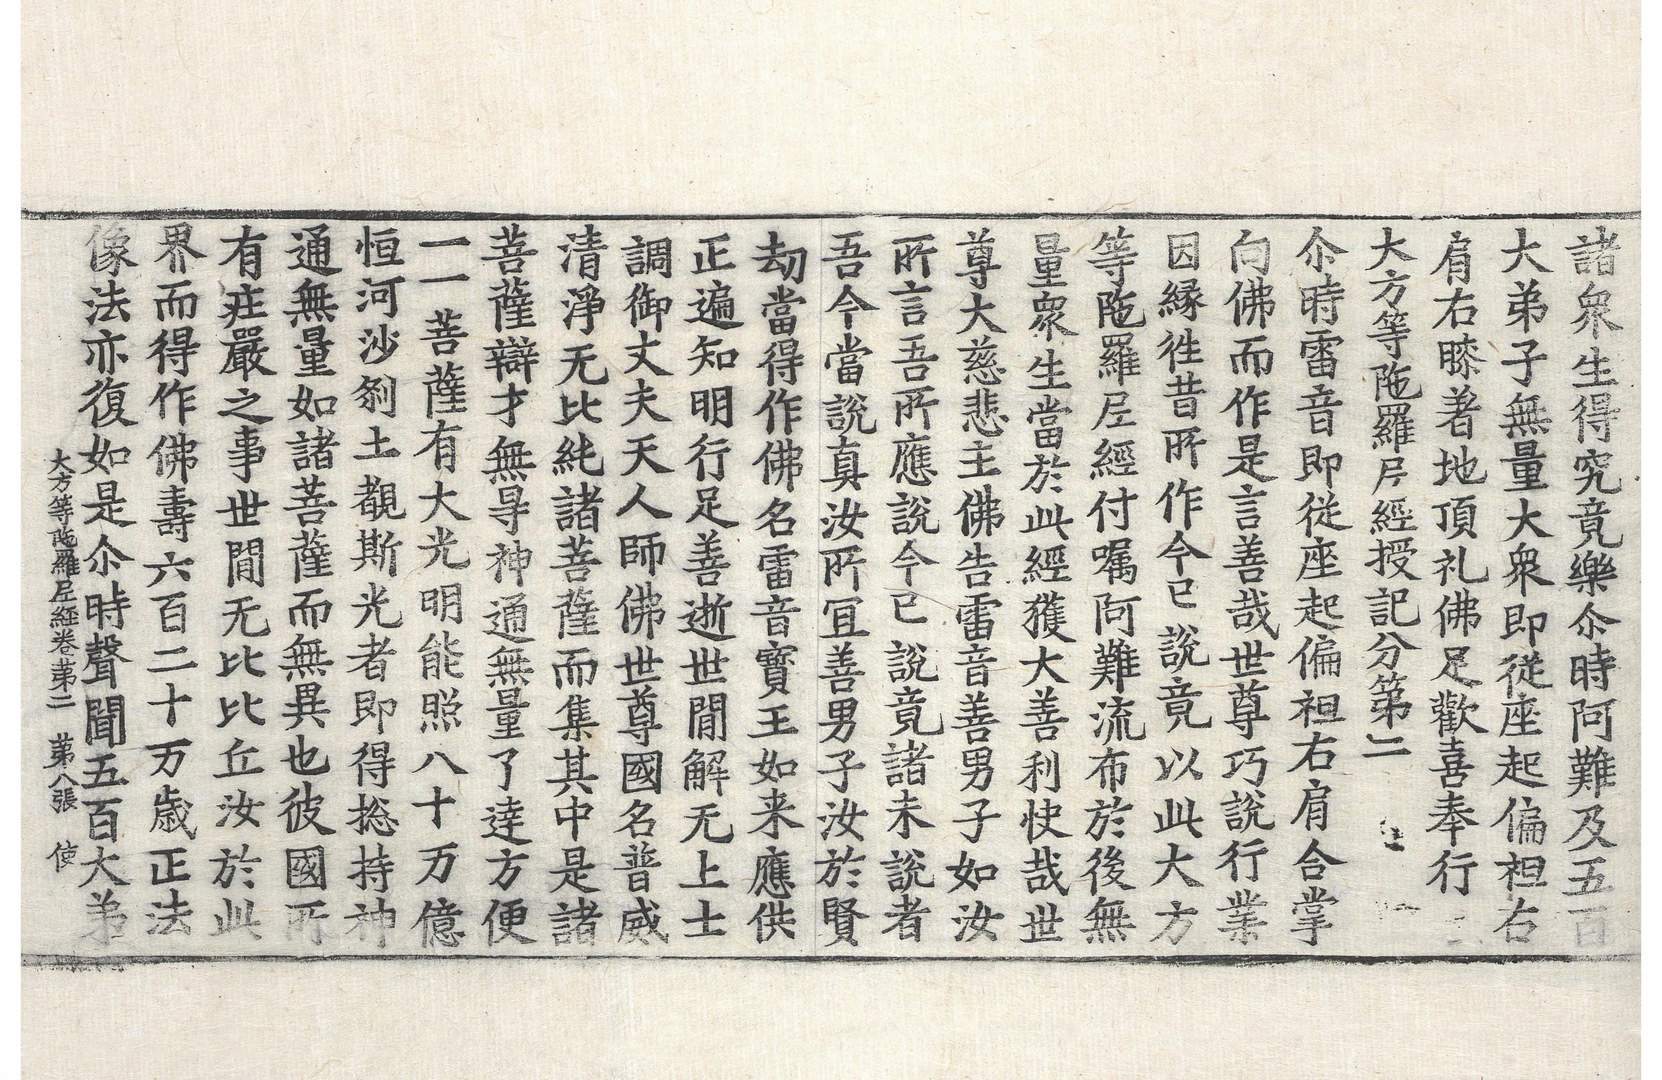 諸衆生得究竟樂尒時阿難及五百
大弟子無量大衆即從座起偏袒右
肩右膝著地頂礼佛足歡喜奉行
大方等陁羅尼經授記分第二
尒時雷音即從座起偏袒右肩合掌
向佛而作是言善哉世尊巧說行業
因緣徃昔所作今已說竟以此大方
等陁羅尼經付嘱阿難流布於後無
量衆生當於此經獲大善利快哉世
尊大慈悲主佛告雷音善男子如汝
所言吾所應說今已說竟諸未說者
吾今當說真汝所冝善男子汝於賢
劫當得作佛名雷音寶王如来應供
正遍知明行足善逝世閒解无上士
調御丈夫天人師佛世尊國名普威
清淨无比純諸菩薩而集其中是諸
菩薩辯才無导神通無量了達方便
一一菩薩有大光明能照八十万億
恒河沙剎土覩斯光者即得捴持神
通無量如諸菩薩而無異也彼國所
有莊嚴之事世閒无比比丘汝於此
界而得作佛壽六百二十万歲正法
像法亦復如是尒時聲聞五百大弟
大方等陁羅尼經卷苐二 苐八張 使